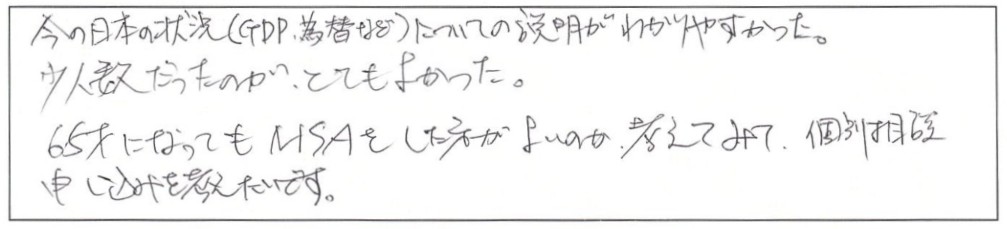 今の日本の状況(GDP、為替など)についての説明がわかりやすかった。
少人数だったのが、とてもよかった。
65才になってもNISAをした方がよいのか、考えてみて、個別相談
申し込みを考えたいです。